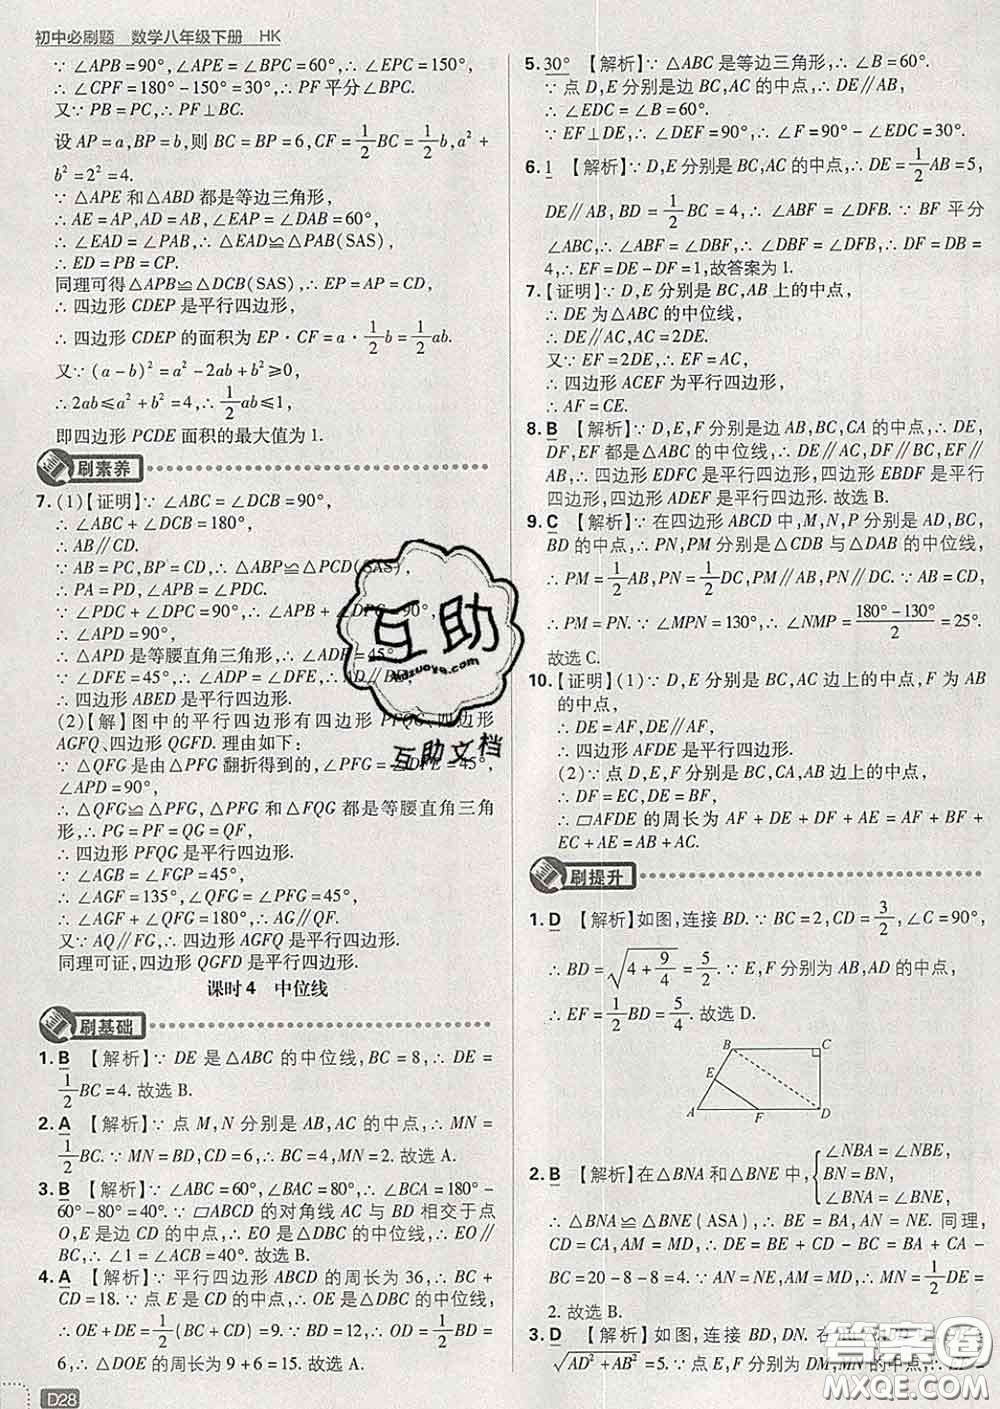 初中必刷题 数学八年级下册 HK
∵ ∠APB=90°,∠APE=∠BPC=60°,∴ ∠EPC=150°,
∴ ∠CPF=180°-150°=30°,∴ PF平分∠BPC.
又∵ PB=PC,∴ PF⊥BC.
设AP=a,BP=b,则BC=BP=b,CF=1/2BC=1/2b,a²+
b²=2²=4.
∵ △APE和△ABD都是等边三角形,
∴ AE=AP,AD=AB,∠EAP=∠DAB=60°,
∴ ∠EAD=∠PAB,∴ △EAD≌△PAB(SAS),
∴ ED=PB=CP.
同理可得△APB≌△DCB(SAS),∴ EP=AP=CD,
∴ 四边形CDEP是平行四边形,
∴ 四边形CDEP的面积为EP·CF=a·1/2b=1/2ab.
又∵ (a-b)²=a²-2ab+b²≥0,
∴ 2ab≤a²+b²=4,∴ 1/2ab≤1,
即四边形PCDE面积的最大值为1.
刷素养
7. (1)【证明】∵ ∠ABC=∠DCB=90°,
∴ ∠ABC+∠DCB=180°,
∴ AB∥CD.
∵ AB=PC,BP=CD,∴ △ABP≌△PCD(SAS),
∴ PA=PD,∠APB=∠PDC.
∵ ∠PDC+∠DPC=90°,∴ ∠APB+∠DPC=90°,
∴ ∠APD=90°,
∴ △APD是等腰直角三角形,∴ ∠ADP=45°.
∵ ∠DFE=45°,∴ ∠ADP=∠DFE,∴ AD∥BF,
∴ 四边形ABED是平行四边形.
(2)【解】图中的平行四边形有四边形PFQG、四边形
AGFQ、四边形QGFD.理由如下:
∵ △QFG是由△PFG翻折得到的,∠PFG=∠DFE=45°,
∠APD=90°,
∴ △QFG≌△PFG,△PFG和△FQG都是等腰直角三角
形,∴ PG=PF=QG=QF,
∴ 四边形PFQG是平行四边形.
∵ ∠AGB=∠FGP=45°,
∴ ∠AGF=135°,∠QFG=∠PFG=45°,
∴ ∠AGF+∠QFG=180°,∴ AG∥QF.
又∵ AQ∥FG,∴ 四边形AGFQ是平行四边形.
同理可证,四边形QGFD是平行四边形.
课时4 中位线
刷基础
1. B 【解析】∵ DE是△ABC的中位线,BC=8,∴ DE=
1/2BC=4.故选B.
2. A 【解析】∵ 点M,N分别是AB,AC的中点,∴ MN=
1/2BC.∵ MN=BD,∴ BC=4,∴ MN=2.故选A.
3. B 【解析】∵ ∠ABC=60°,∠BAC=80°,∴ ∠BCA=180°-
60°-80°=40°.∵ ▱ABCD的对角线AC与BD相交于点
O,E是边CD的中点,∴ EO是△DBC的中位线,∴ EO∥
BC,∴ ∠1=∠ACB=40°.故选B.
4. A 【解析】∵ 平行四边形ABCD的周长为36,∴ BC+
CD=18.∵ 点E是CD的中点,∴ OE是△DBC的中位线,
∴ OE+DE=1/2(BC+CD)=9.∵ BD=12,∴ OD=1/2BD=
6,∴ △DOE的周长为9+6=15.故选A.
D28
5. 30° 【解析】∵ △ABC是等边三角形,∴ ∠B=60°.
∵ 点D,E分别是边BC,AC的中点,∴ DE∥AB,
∴ ∠EDC=∠B=60°.
∵ EF⊥DE,∴ ∠F=90°-∠EDC=30°.
6. 1 【解析】∵ D,E分别是BC,AC的中点,∴ DE=1/2AB=5,
DE∥AB,BD=1/2BC=4,∴ ∠ABF=∠DFB.∵ BF平分
∠ABC,∴ ∠ABF=∠DBF,∴ ∠DBF=∠DFB,∴ DF=DB=
4,∴ EF=DE-DF=1,故答案为1.
7.【证明】∵ D,E分别是BC,AB上的中点,
∴ DE为△ABC的中位线,
∴ DE∥AC,AC=2DE.
又∵ EF=2DE,∴ EF=AC,
∴ 四边形ACEF为平行四边形,
∴ AF=CE.
8. B 【解析】∵ D,E,F分别是边AB,BC,CA的中点,∴ DE,
DF,EF都是△ABC的中位线,∴ DE∥AC,DF∥BC,
EF∥AB,∴ 四边形EDFC是平行四边形,四边形EBDF是平行
四边形,四边形ADEF是平行四边形.故选B.
9. C 【解析】∵ 在四边形ABCD中,M,N,P分别是AD,BC,
BD的中点,∴ PN,PM分别是△CDB与△DAB的中位线,
∴ PM=1/2AB,PN=1/2DC,PM∥AB,PN∥DC.∵ AB=CD,
∴ PM=PN.∵ ∠MPN=130°,∴ ∠NMP=(180°-130°)/2=25°.
故选C.
10.【证明】(1)∵ D,E分别是BC,AC边上的中点,F为AB
的中点,
∴ DE=AF,DE∥AF,
∴ 四边形AFDE是平行四边形.
(2)∵ 点D,E,F分别是BC,CA,AB边上的中点,
∴ DF=EC,DE=BF,
∴ ▱AFDE的周长为AF+DE+DF+AE=AF+BF+
EC+AE=AB+AC.
刷提升
1. D 【解析】如图,连接BD.∵ BC=2,CD=3/2,∠C=90°,
∴ BD=√(4+9/4)=5/2.∵ E,F分别为AB,AD的中点,
∴ EF=1/2BD=5/4.故选D.
B C
E
A F D
2. B 【解析】在△BNA和△BNE中,{∠NBA=∠NBE,
BN=BN,
∠BNA=∠BNE,
∴ △BNA≌△BNE(ASA),∴ BE=BA,AN=NE.同理,
CD=CA,AM=MD,∴ DE=BE+CD-BC=BA+CA-
BC=20-8-8=4.∵ AN=NE,AM=MD,∴ MN=1/2DE=
2.故选B.
3. D 【解析】如图,连接BD,DN.在
√(AD²+AB²)=5.∵ 点E,F分别为DM,MN的中点,
互助
Hdzuoye.com
互助文档
答案圈
MXQE.COM